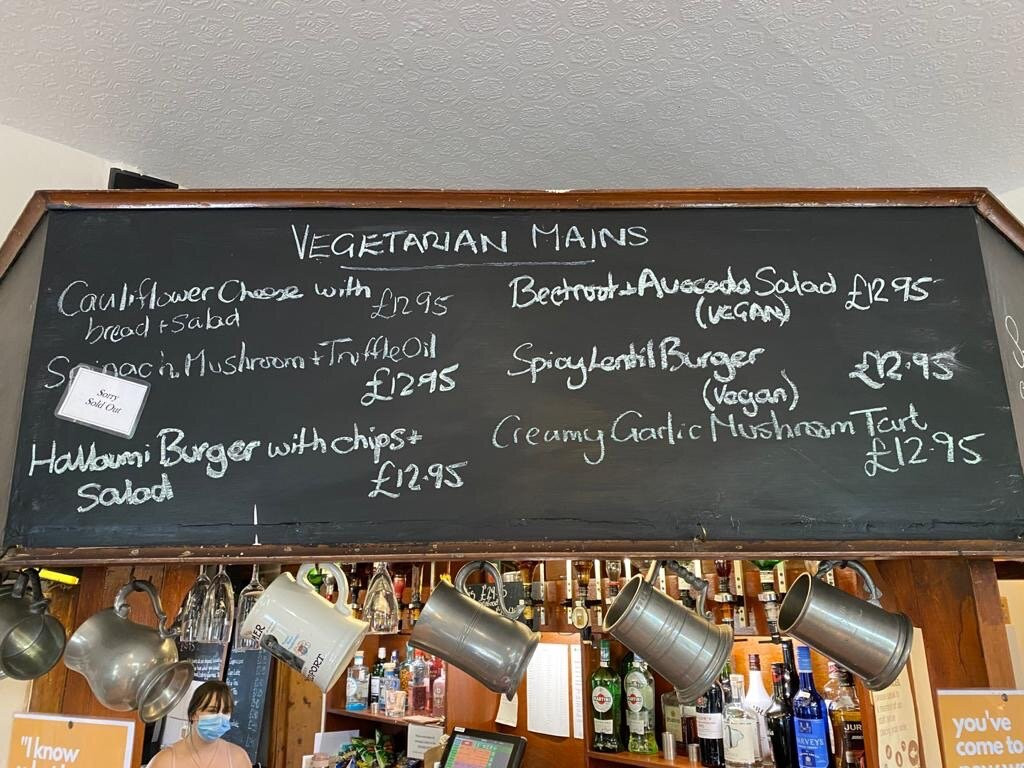 VEGETARIAN MAINS
Cauliflower Cheese with
bread + Salad
£12.95
Spinach, Mushroom + Truffle Oil
£12.95
Sorry
Sold Out
Halloumi Burger with chips +
Salad
£12.95
Beetroot + Avocado Salad £12.95
(VEGAN)
Spicy Lentil Burger £12.95
(Vegan)
Creamy Garlic Mushroom Tart
£12.95
"I know
you've
come to